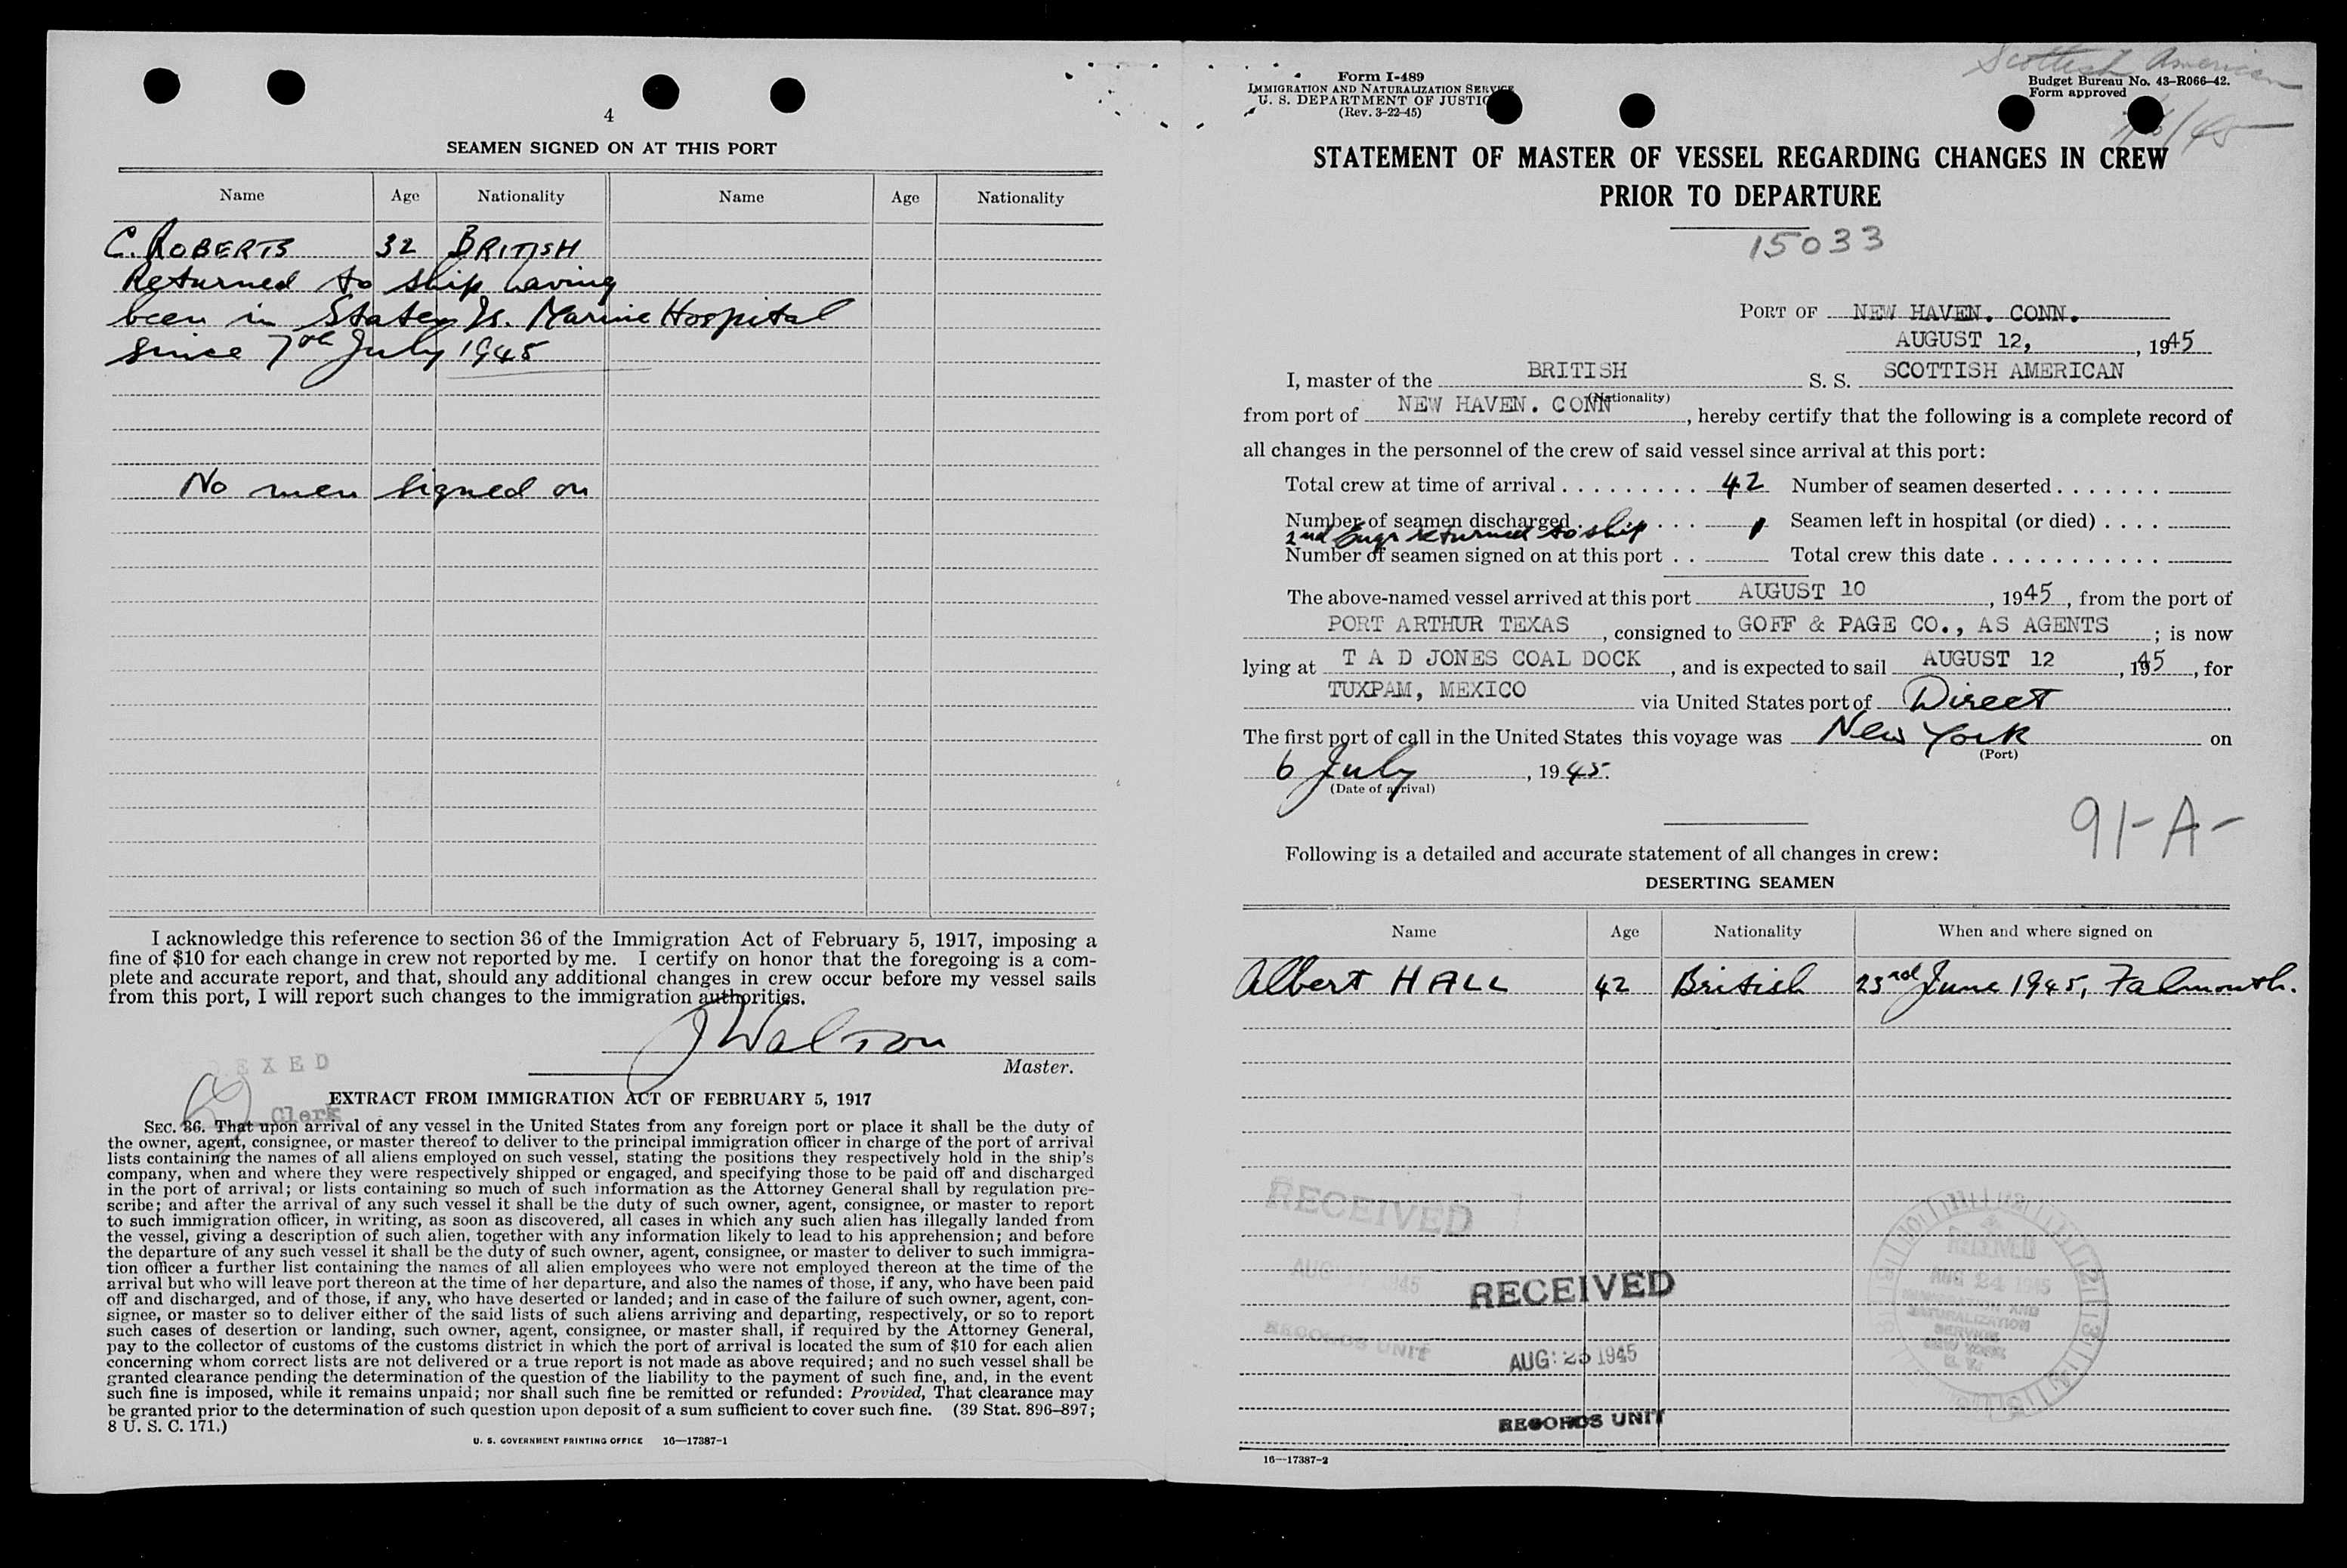 4
SEAMEN SIGNED ON AT THIS PORT
Name Age Nationality Name Age Nationality
C. ROBERTS 32 BRITISH
Returned to ship having
been in Staten Is. Marine Hospital
since 7th July 1945
No men signed on
I acknowledge this reference to section 36 of the Immigration Act of February 5, 1917, imposing a
fine of $10 for each change in crew not reported by me. I certify on honor that the foregoing is a com-
plete and accurate report, and that, should any additional changes in crew occur before my vessel sails
from this port, I will report such changes to the immigration authorities.
J Watson
Master.
EXED
Clerk
EXTRACT FROM IMMIGRATION ACT OF FEBRUARY 5, 1917
SEC. 36. That upon arrival of any vessel in the United States from any foreign port or place it shall be the duty of
the owner, agent, consignee, or master thereof to deliver to the principal immigration officer in charge of the port of arrival
lists containing the names of all aliens employed on such vessel, stating the positions they respectively hold in the ship's
company, when and where they were respectively shipped or engaged, and specifying those to be paid off and discharged
in the port of arrival; or lists containing so much of such information as the Attorney General shall by regulation pre-
scribe; and after the arrival of any such vessel it shall be the duty of such owner, agent, consignee, or master to report
to such immigration officer, in writing, as soon as discovered, all cases in which any such alien has illegally landed from
the vessel, giving a description of such alien, together with any information likely to lead to his apprehension; and before
the departure of any such vessel it shall be the duty of such owner, agent, consignee, or master to deliver to such immigra-
tion officer a further list containing the names of all alien employees who were not employed thereon at the time of the
arrival but who will leave port thereon at the time of her departure, and also the names of those, if any, who have been paid
off and discharged, and of those, if any, who have deserted or landed; and in case of the failure of such owner, agent, con-
signee, or master so to deliver either of the said lists of such aliens arriving and departing, respectively, or so to report
such cases of desertion or landing, such owner, agent, consignee, or master shall, if required by the Attorney General,
pay to the collector of customs of the customs district in which the port of arrival is located the sum of $10 for each alien
concerning whom correct lists are not delivered or a true report is not made as above required; and no such vessel shall be
granted clearance pending the determination of the question of the liability to the payment of such fine, and, in the event
such fine is imposed, while it remains unpaid; nor shall such fine be remitted or refunded: Provided, That clearance may
be granted prior to the determination of such question upon deposit of a sum sufficient to cover such fine. (39 Stat. 896–897;
8 U. S. C. 171.)
U. S. GOVERNMENT PRINTING OFFICE 16—17387-1
Scottish American
Form I-489
IMMIGRATION AND NATURALIZATION SERVICE
U. S. DEPARTMENT OF JUSTIC
(Rev. 3-22-45)
Budget Bureau No. 43-R066-42.
Form approved
STATEMENT OF MASTER OF VESSEL REGARDING CHANGES IN CREW
PRIOR TO DEPARTURE
15033
PORT OF NEW HAVEN. CONN.
AUGUST 12, , 1945
I, master of the BRITISH S. S. SCOTTISH AMERICAN
(Nationality)
from port of NEW HAVEN. CONN , hereby certify that the following is a complete record of
all changes in the personnel of the crew of said vessel since arrival at this port:
Total crew at time of arrival . . . . . . . . . 42 Number of seamen deserted . . . . . . .
Number of seamen discharged . . . . Seamen left in hospital (or died) . . . .
2nd Engr returned to ship 1
Number of seamen signed on at this port . . Total crew this date . . . . . . . . . . .
The above-named vessel arrived at this port AUGUST 10 , 1945 , from the port of
PORT ARTHUR TEXAS , consigned to GOFF & PAGE CO., AS AGENTS ; is now
lying at T A D JONES COAL DOCK , and is expected to sail AUGUST 12 , 1945 , for
TUXPAM, MEXICO via United States port of Direct
The first port of call in the United States this voyage was New York on
(Port)
6 July , 1945.
(Date of arrival)
91-A-
Following is a detailed and accurate statement of all changes in crew:
DESERTING SEAMEN
Name Age Nationality When and where signed on
Albert HALL 42 British 23rd June 1945, Falmouth.
RECEIVED
AUG 1945
RECORDS UNIT
RECEIVED
AUG 25 1945
RECORDS UNIT
RECEIVED
AUG 24 1945
IMMIGRATION AND
NATURALIZATION
SERVICE
NEW YORK
N. Y.
16—17387-2